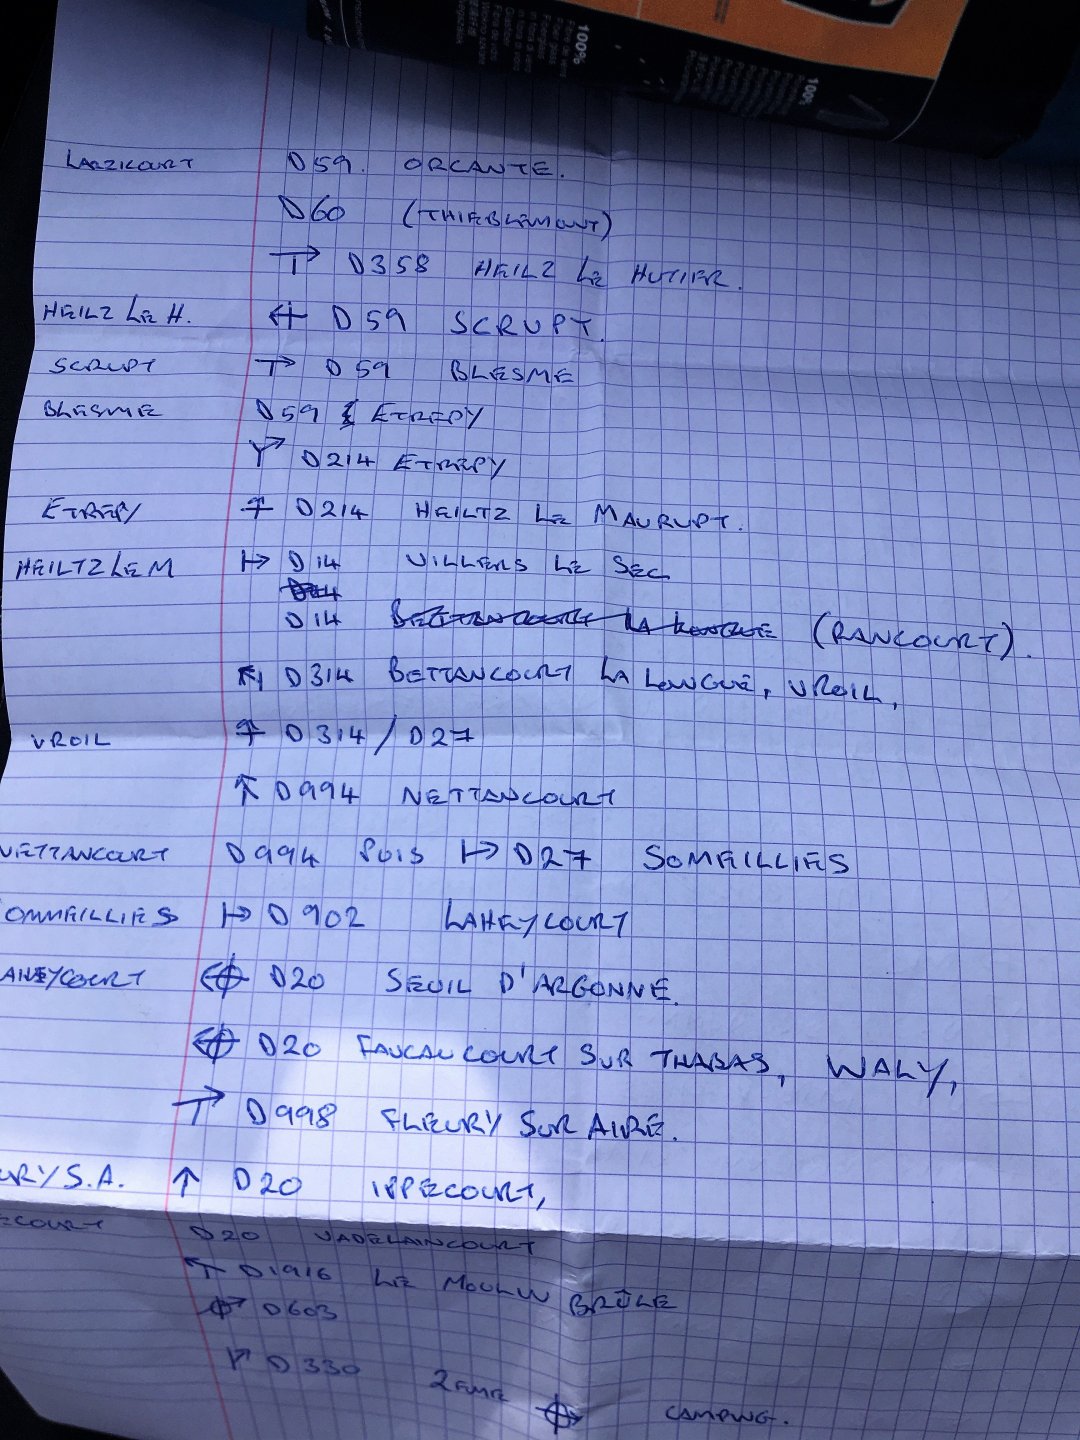 100%
100%
LARZICOURT D59. ORCANTE.
D60 (THIEBLEMONT)
→ D358 HEILZ LE HUTIER.
HEILZ LE H. ← D59 SCRUPT.
SCRUPT → D59 BLESME
BLESME D59 ETREPY
D214 ETREPY
ETREPY ↑ D214 HEILTZ LE MAURUPT.
HEILTZ LE M ↦ D14 VILLERS LE SEC
D14 BETTANCOURT LA LONGUE (RANCOURT).
D314 BETTANCOURT LA LONGUE, VROIL,
VROIL ↑ D314 / D27
↑ D994 NETTANCOURT
NETTANCOURT D994 PUIS ↦ D27 SOMEILLIES
OMMEILLIES ↦ D902 LAHEYCOURT
AHEYCOURT D20 SEUIL D'ARGONNE.
D20 FAUCAUCOURT SUR THABAS, WALY,
→ D998 FLEURY SUR AIRE.
URY S.A. ↑ D20 IPPECOURT,
ECOURT D20 VADELAINCOURT
D1916 LE MOULIN BRÛLE
D603
D330 2EME CAMPING.